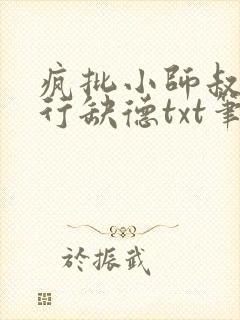 疯批小師叔
行缺德txt筆
於振武